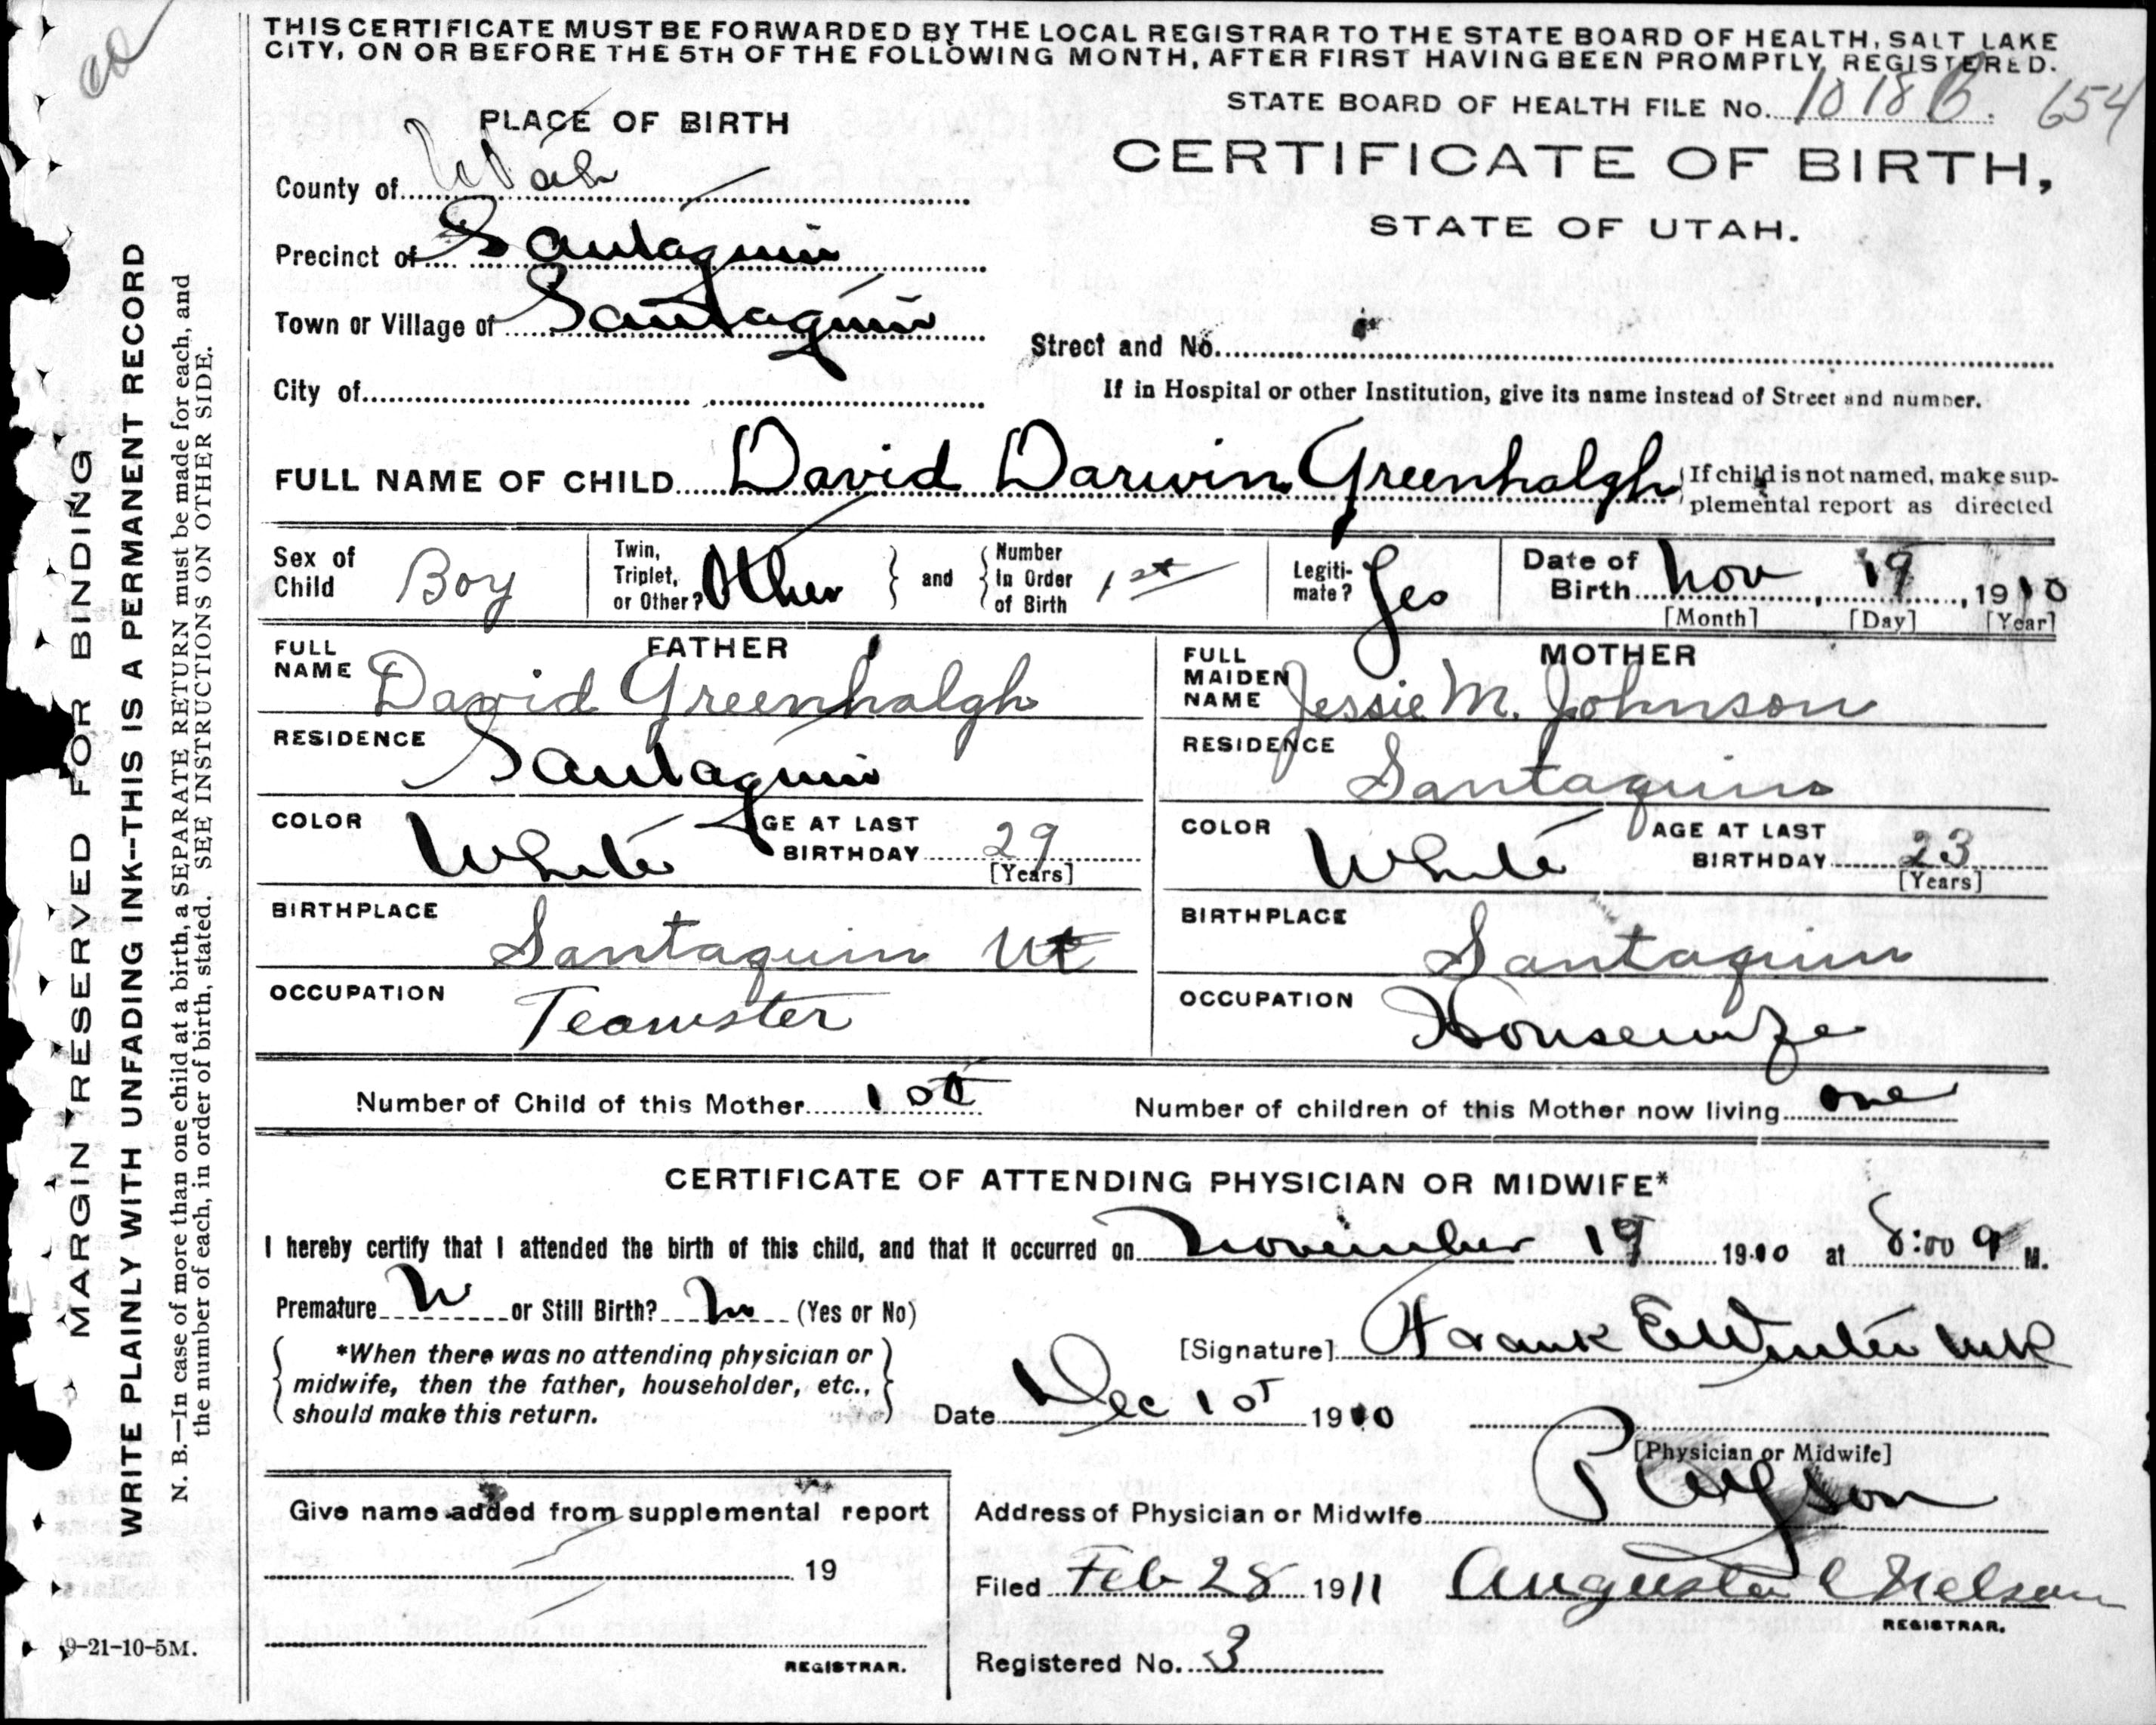 THIS CERTIFICATE MUST BE FORWARDED BY THE LOCAL REGISTRAR TO THE STATE BOARD OF HEALTH, SALT LAKE
CITY, ON OR BEFORE THE 5TH OF THE FOLLOWING MONTH, AFTER FIRST HAVING BEEN PROMPTLY REGISTERED.
STATE BOARD OF HEALTH FILE No. 1018 B. 654
PLACE OF BIRTH
CERTIFICATE OF BIRTH,
STATE OF UTAH.
County of Utah
Precinct of Santaquin
Town or Village of Santaquin
Street and No.
City of
If in Hospital or other Institution, give its name instead of Street and number.
FULL NAME OF CHILD David Darwin Greenhalgh
If child is not named, make sup-
plemental report as directed
Sex of Child Boy
Twin, Triplet, or Other? Other
and
Number In Order of Birth 1st
Legiti-
mate? Yes
Date of Birth Nov 19, 1910
[Month] [Day] [Year]
FATHER
FULL NAME David Greenhalgh
RESIDENCE Santaquin
COLOR White
AGE AT LAST BIRTHDAY 29
[Years]
BIRTHPLACE Santaquin Ut
OCCUPATION Teamster
MOTHER
FULL MAIDEN NAME Jessie M. Johnson
RESIDENCE Santaquin
COLOR White
AGE AT LAST BIRTHDAY 23
[Years]
BIRTHPLACE Santaquin
OCCUPATION Housewife
Number of Child of this Mother 1st
Number of children of this Mother now living one
CERTIFICATE OF ATTENDING PHYSICIAN OR MIDWIFE*
I hereby certify that I attended the birth of this child, and that it occurred on November 19 1910 at 8:00 M.
Premature or Still Birth? (Yes or No)
*When there was no attending physician or
midwife, then the father, householder, etc.,
should make this return.
[Signature] Frank E Winter
Date Dec 1st 1910
[Physician or Midwife]
Address of Physician or Midwife Payson
Give name added from supplemental report
19
REGISTRAR.
Filed Feb 28 1911 Augusta C Nelson
REGISTRAR.
Registered No. 3
9-21-10-5M.
MARGIN RESERVED FOR BINDING
WRITE PLAINLY WITH UNFADING INK--THIS IS A PERMANENT RECORD
N. B.—In case of more than one child at a birth, a SEPARATE RETURN must be made for each, and
the number of each, in order of birth, stated. SEE INSTRUCTIONS ON OTHER SIDE.